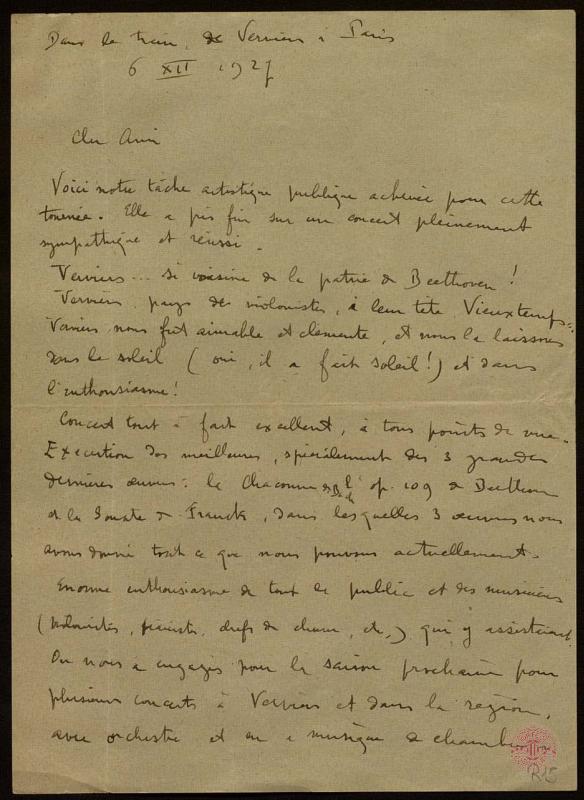 Dans le train, de Verviers à Paris
6 XII 1927
Cher Ami
Voici notre tâche artistique publique achevée pour cette
tournée. Elle a pris fin sur un concert pleinement
sympathique et réussi.
Verviers... si voisine de la patrie de Beethoven!
Verviers, pays des violonistes, à leur tête, Vieuxtemps.
Verviers nous fut aimable et clémente, et nous la laissons
dans le soleil (oui, il a fait soleil!) et dans
l'enthousiasme!
Concert tout à fait excellent, à tous points de vue.
Exécution des meilleures, spécialement des 3 grandes
dernières œuvres: la Chaconne de Bach, l'op. 109 de Beethoven
et la Sonate de Franck, dans lesquelles 3 œuvres nous
avons donné tout ce que nous pouvons actuellement.
Enorme enthousiasme de tout le public et des musiciens
(violonistes, pianistes, chefs de chœur, etc,) qui y assistaient.
On nous a engagés pour la saison prochaine pour
plusieurs concerts à Verviers et dans la région,
avec orchestre et en musique de chambre
R15